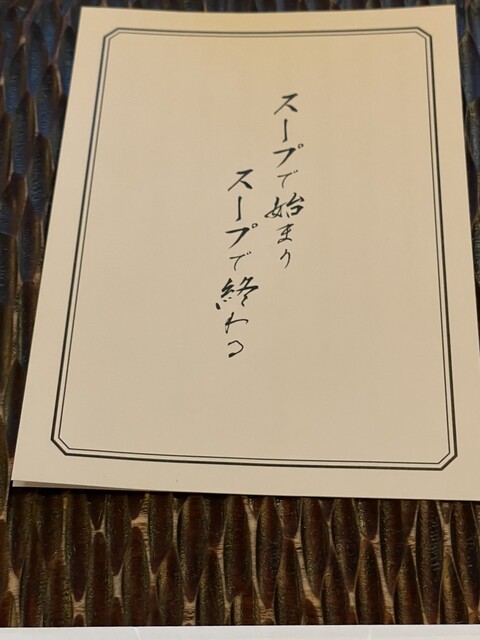 スープで始まり
スープで終わる